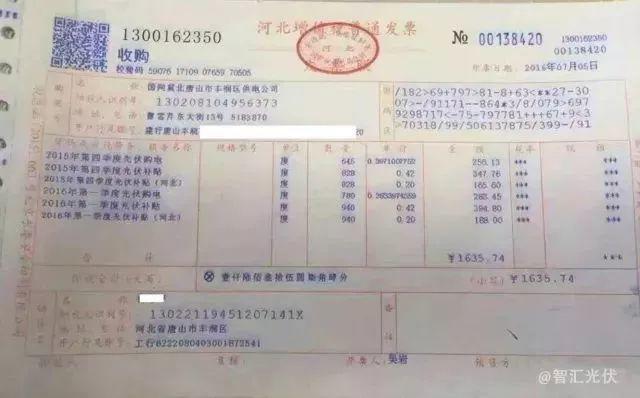 1300162350
收购
校验码 59076 17109 07659 70505
河北增值税普通发票
河北
№ 00138420
1300162350
00138420
开票日期: 2016年07月05日
国网冀北唐山市丰润区供电公司
130208104956373
曹雪芹东大街13号 5183870
建行唐山丰
/182>69+797>81-8+63<**27-30
07>-/91171--864*3/8/079>697
9298717<-75-797781+++67+9<3
>70318/99/506137875/399-/91
2015年第四季度光伏购电 度 645 0.3971007752 256.13 ***
2015年第四季度光伏补贴 度 828 0.42 347.76 ***
2015年第四季度光伏补贴(河北) 度 828 0.20 165.60 ***
2016年第一季度光伏购电 度 780 0.3633974359 283.45 ***
2016年第一季度光伏补贴 度 940 0.42 394.80 ***
2016年第一季度光伏补贴(河北) 度 940 0.20 188.00 ***
合计 ¥1635.74 ***
价税合计(大写) ⊗ 壹仟陆佰叁拾伍圆柒角肆分 (小写) ¥1635.74
名称:
纳税人识别号: 13022119451207141X
地址、电话: 河北省唐山市丰润区
开户行及账号: 工行6222080403001872541
收款人: 复核: 开票人: 吴岩 销售方:
@智汇光伏